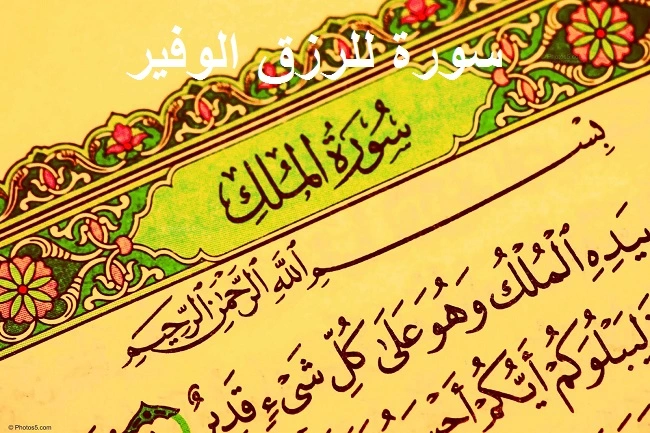 سورة للرزق الوفير
سُورَةُ المُلْكِ
بِسْمِ ٱللَّهِ ٱلرَّحْمَٰنِ ٱلرَّحِيمِ
بِيَدِهِ ٱلْمُلْكُ وَهُوَ عَلَىٰ كُلِّ شَىْءٍ قَدِيرٌ
لِيَبْلُوَكُمْ أَيُّكُمْ
© Photos5.com